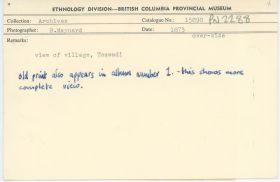 ETHNOLOGY DIVISION—BRITISH COLUMBIA PROVINCIAL MUSEUM
Collection: Archives Catalogue No.: 15890 PN 2288
Photographer: R.Maynard Date: 1873 over-size
Remarks:
view of village, Tsawadi
old print also appears in album number 1. - this shows more
complete view.